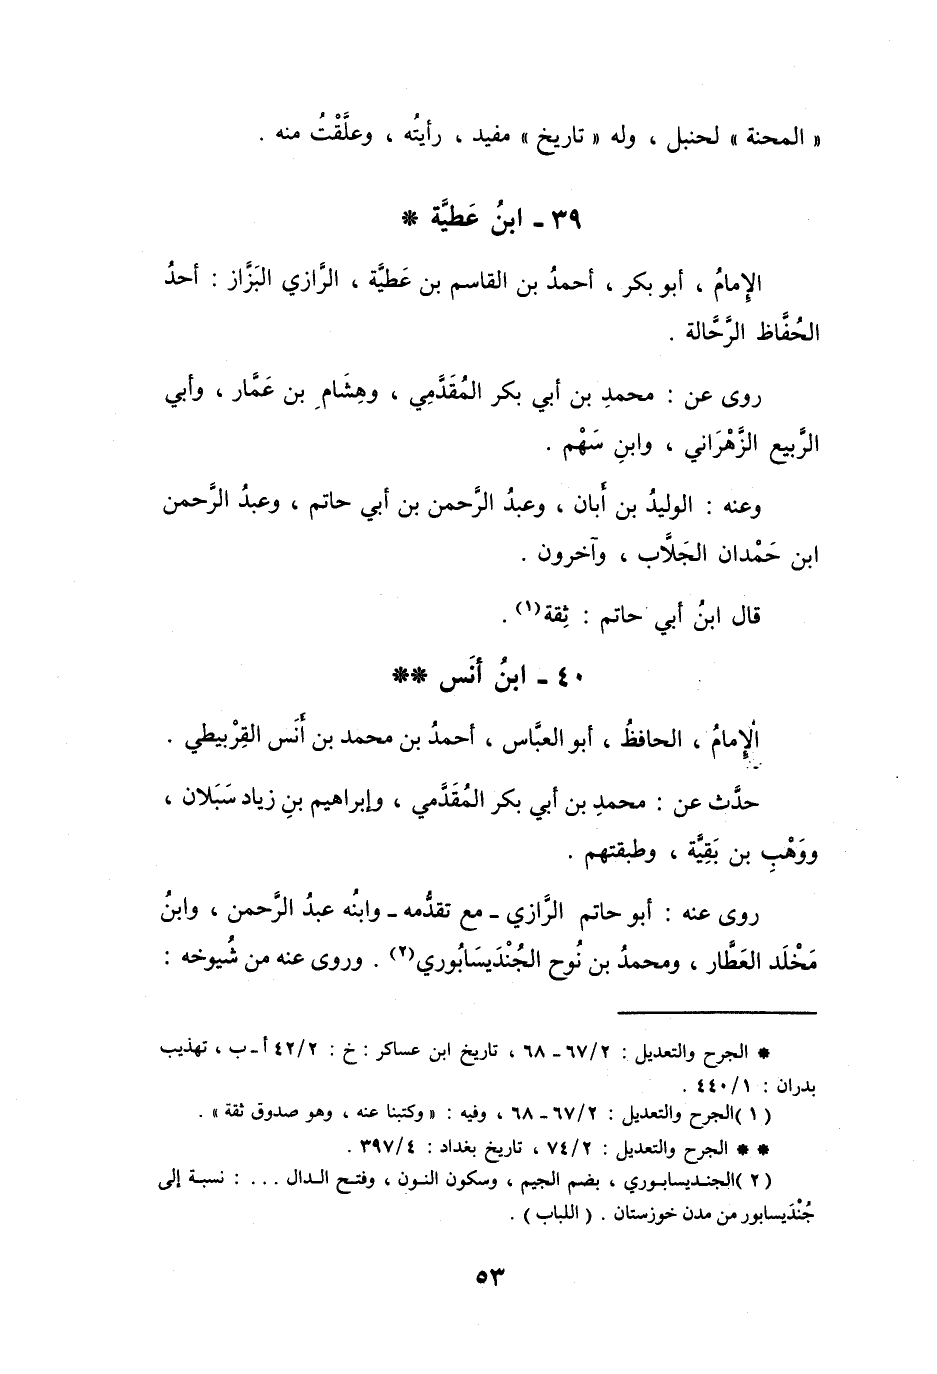 « المحنة » لحنبل ، وله « تاريخ » مفيد ، رأيتُه ، وعلَّقْتُ منه .
٣٩ ـ ابنُ عَطيَّة *
الإِمامُ ، أبو بكر ، أحمدُ بن القاسم بن عَطيَّة ، الرَّازي البَزَّاز : أحدُ
الحُفَّاظ الرَّحَّالة .
روى عن : محمدِ بن أبي بكر المُقَدَّمِي ، وهِشَامِ بن عَمَّار ، وأبي
الرَّبيع الزَّهْرَاني ، وابنِ سَهْم .
وعنه : الوليدُ بن أَبان ، وعبدُ الرَّحمن بن أبي حاتم ، وعبدُ الرَّحمن
ابن حَمْدان الجَلَّاب ، وآخرون .
قال ابنُ أبي حاتم : ثِقة(١) .
٤٠ ـ ابنُ أنَس **
الإِمامُ ، الحافظُ ، أبو العبَّاس ، أحمدُ بن محمد بن أَنَس القِرْبيطي .
حدَّث عن : محمدِ بن أبي بكر المُقَدَّمي ، وإبراهيم بنِ زياد سَبَلان ،
ووَهْبِ بن بَقِيَّة ، وطبقتهم .
روى عنه : أبو حاتم الرَّازي ـ مع تقدُّمه ـ وابنُه عبدُ الرَّحمن ، وابنُ
مَخْلَد العَطَّار ، ومحمدُ بن نُوح الجُنْدَيسَابُوري(٢) . وروى عنه من شُيوخه :
* الجرح والتعديل : ٦٧/٢ ـ ٦٨ ، تاريخ ابن عساكر : خ : ٤٢/٢ أ ـ ب ، تهذيب
بدران : ٤٤٠/١ .
( ١ )الجرح والتعديل : ٦٧/٢ ـ ٦٨ ، وفيه : « وكتبنا عنه ، وهو صدوق ثقة » .
* * الجرح والتعديل : ٧٤/٢ ، تاريخ بغداد : ٣٩٧/٤ .
( ٢ )الجنديسابوري ، بضم الجيم ، وسكون النون ، وفتح الدال ... : نسبة إلى
جُنْدَيسابور من مدن خوزستان . ( اللباب ) .
٥٣